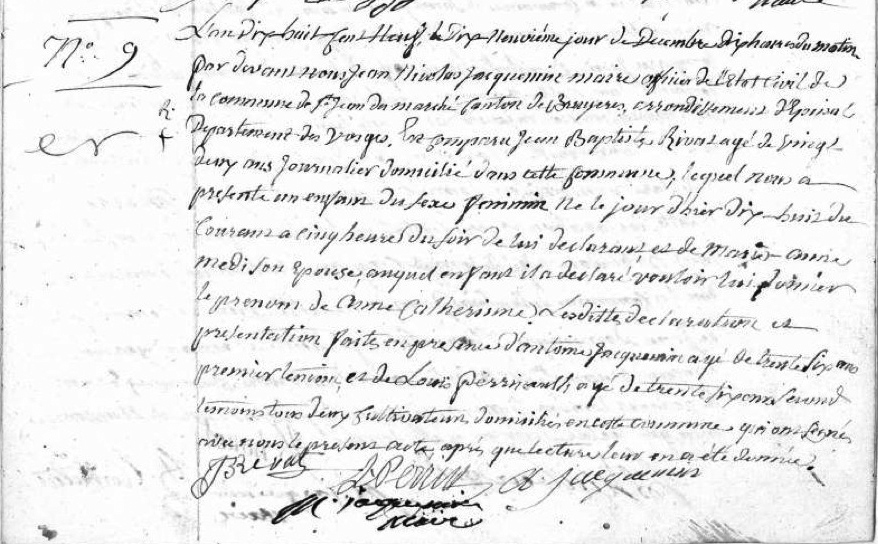 N.o 9
L'an Dix huit Cent Neuf, le Dix Neuvième jour de Decembre dix heures du matin
par devant nous Jean Nicolas Jacquemin maire officier de l'Etat Civil de
la Commune de St Jean du marché Canton de Bruyeres, arrondissement d'Epinal
Departement des Vosges, Est Comparu Jean Baptiste Rivat agé de vingt
deux ans Journalier domicilié dans cette Commune, lequel nous a
présenté un enfant du sexe feminin Né le jour d'hier dix-huit du
Courant a cinq heure du soir de lui declarant et de Marie anne
medi son Epouse, auquel enfant il a declaré vouloir lui donner
le prenom de Anne Catherinne. Lesditte declaration et
présentation faites en presence d'antoine Jacquemin agé de trente six ans
premier temoin, et de Louis Perrin agé de trente six ans second
temoins tous deux Cultivateurs domiciliés en cette commune qui ont signés
avec nous le present acte, après que lecture leur en a été donnée.
JBRivat L Perrin A jacquemin
N. jacquemin
maire